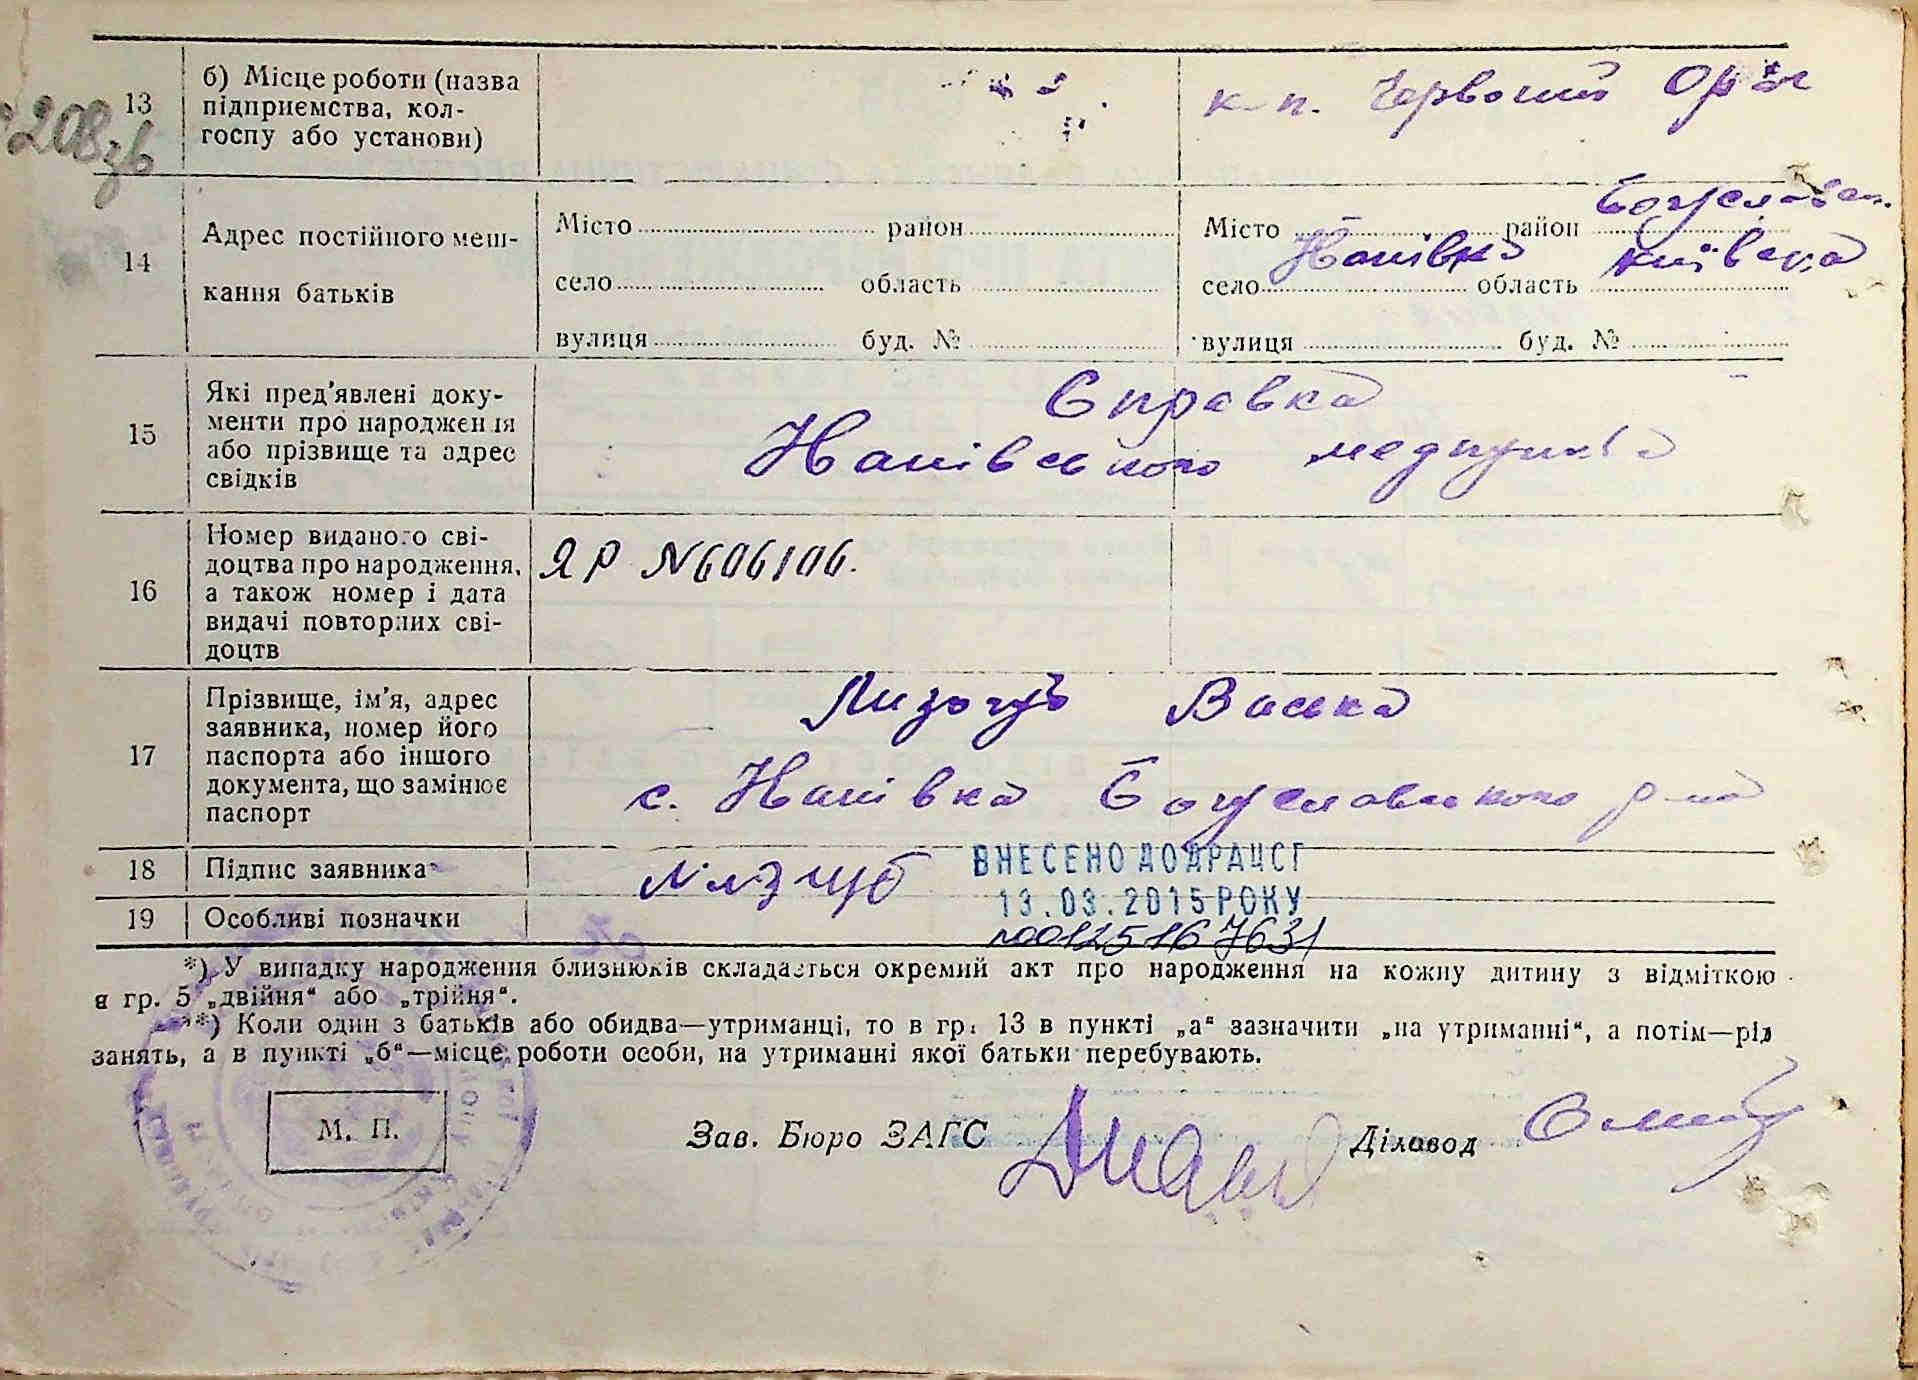 208 зв
13 б) Місце роботи (назва підприємства, кол-
госпу або установи)
к-п. Червоний
14 Адрес постійного меш-
кання батьків
Місто район
село область
вулиця буд. №
Місто район Богуславськ.
село Нанівка область Київська
вулиця буд. №
15 Які пред'явлені доку-
менти про народження
або прізвище та адрес
свідків
Справка
Нанівського медпункта
16 Номер виданого сві-
доцтва про народження,
а також номер і дата
видачі повторних сві-
доцтв
ЯР №606106.
17 Прізвище, ім'я, адрес
заявника, номер його
паспорта або іншого
документа, що замінює
паспорт
Лизогуб Васька
с. Нанівка Богуславського р-на
18 Підпис заявника
Лизгуб
ВНЕСЕНО ДО ДРАЦСГ
13.03.2015 РОКУ
№00125167631
19 Особливі позначки
*) У випадку народження близнюків складається окремий акт про народження на кожну дитину з відміткою
в гр. 5 „двійня“ або „трійня“.
**) Коли один з батьків або обидва—утриманці, то в гр. 13 в пункті „а“ зазначити „на утриманні“, а потім—рід
занять, а в пункті „б“—місце роботи особи, на утриманні якої батьки перебувають.
М. П.
Зав. Бюро ЗАГС
Діловод